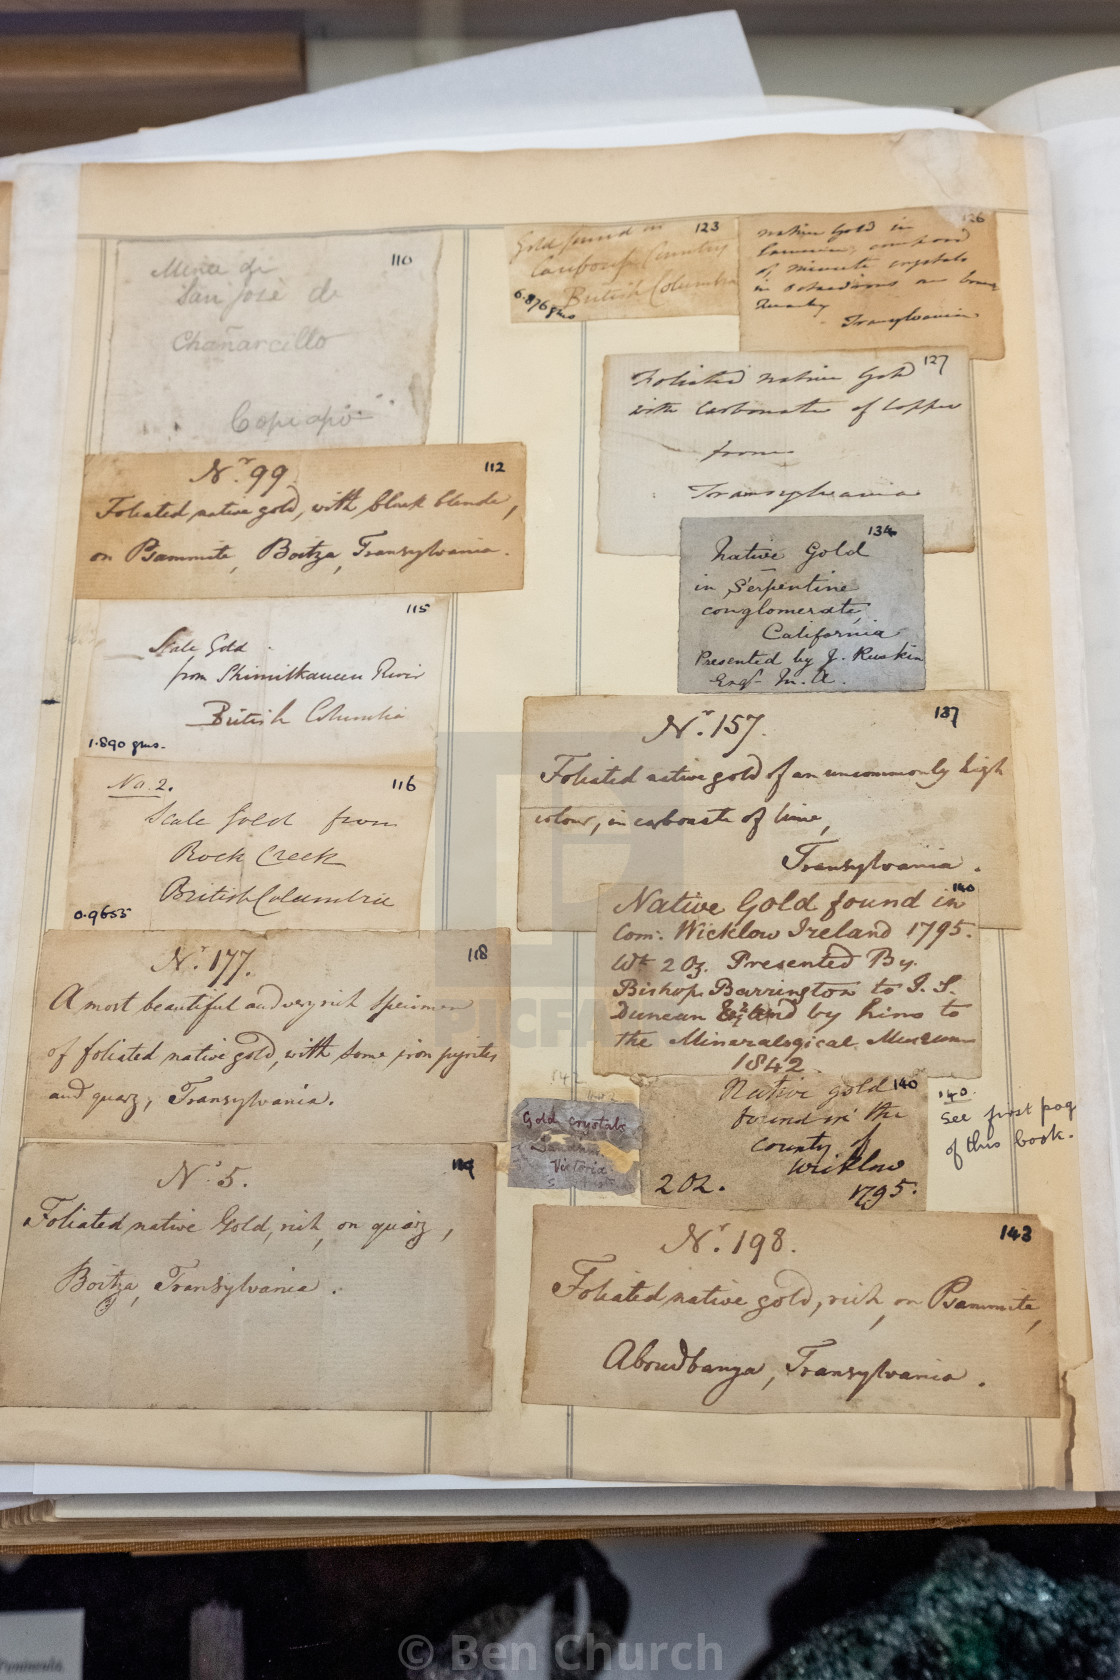 110
Mina di
San José di
Chañarcillo
Copiapò
Nr. 99.
112
Foliated native gold, with black blende,
on Psammite, Boitza, Transylvania.
115
Scale Gold
from Shimilkameen River
British Columbia
1.890 gms.
No. 2.
116
Scale Gold from
Rock Creek
British Columbia
0.9655
Nr. 177.
118
A most beautiful and very rich specimen
of foliated native gold, with some iron pyrites
and quarz, Transylvania.
119
Nr. 5.
Foliated native Gold, rich, on quarz,
Boitza, Transylvania.
123
Gold found in
British Columbia
6.876 gms
126
Native Gold in
of minute crystals
in
Transylvania
127
Foliated native Gold
with Carbonate of Copper
from
Transylvania
134
Native Gold
in Serpentine
conglomerate,
California
Presented by J. Ruskin
Esqr. M.A.
Nr. 157.
137
Foliated native gold of an uncommonly high
colour, in carbonate of lime,
Transylvania.
140
Native Gold found in
Com: Wicklow Ireland 1795.
Wt. 2 Oz. Presented By.
Bishop Barrington to I. S.
Duncan and by him to
the Mineralogical Museum
1842.
Native gold 140
found in the
county of
Wicklow
2 oz. 1795.
140.
See first pag
of this book.
Gold crystals
Victoria
Nr. 198.
143
Foliated native gold, rich, on Psammite,
Abrudbanya, Transylvania.
© Ben Church